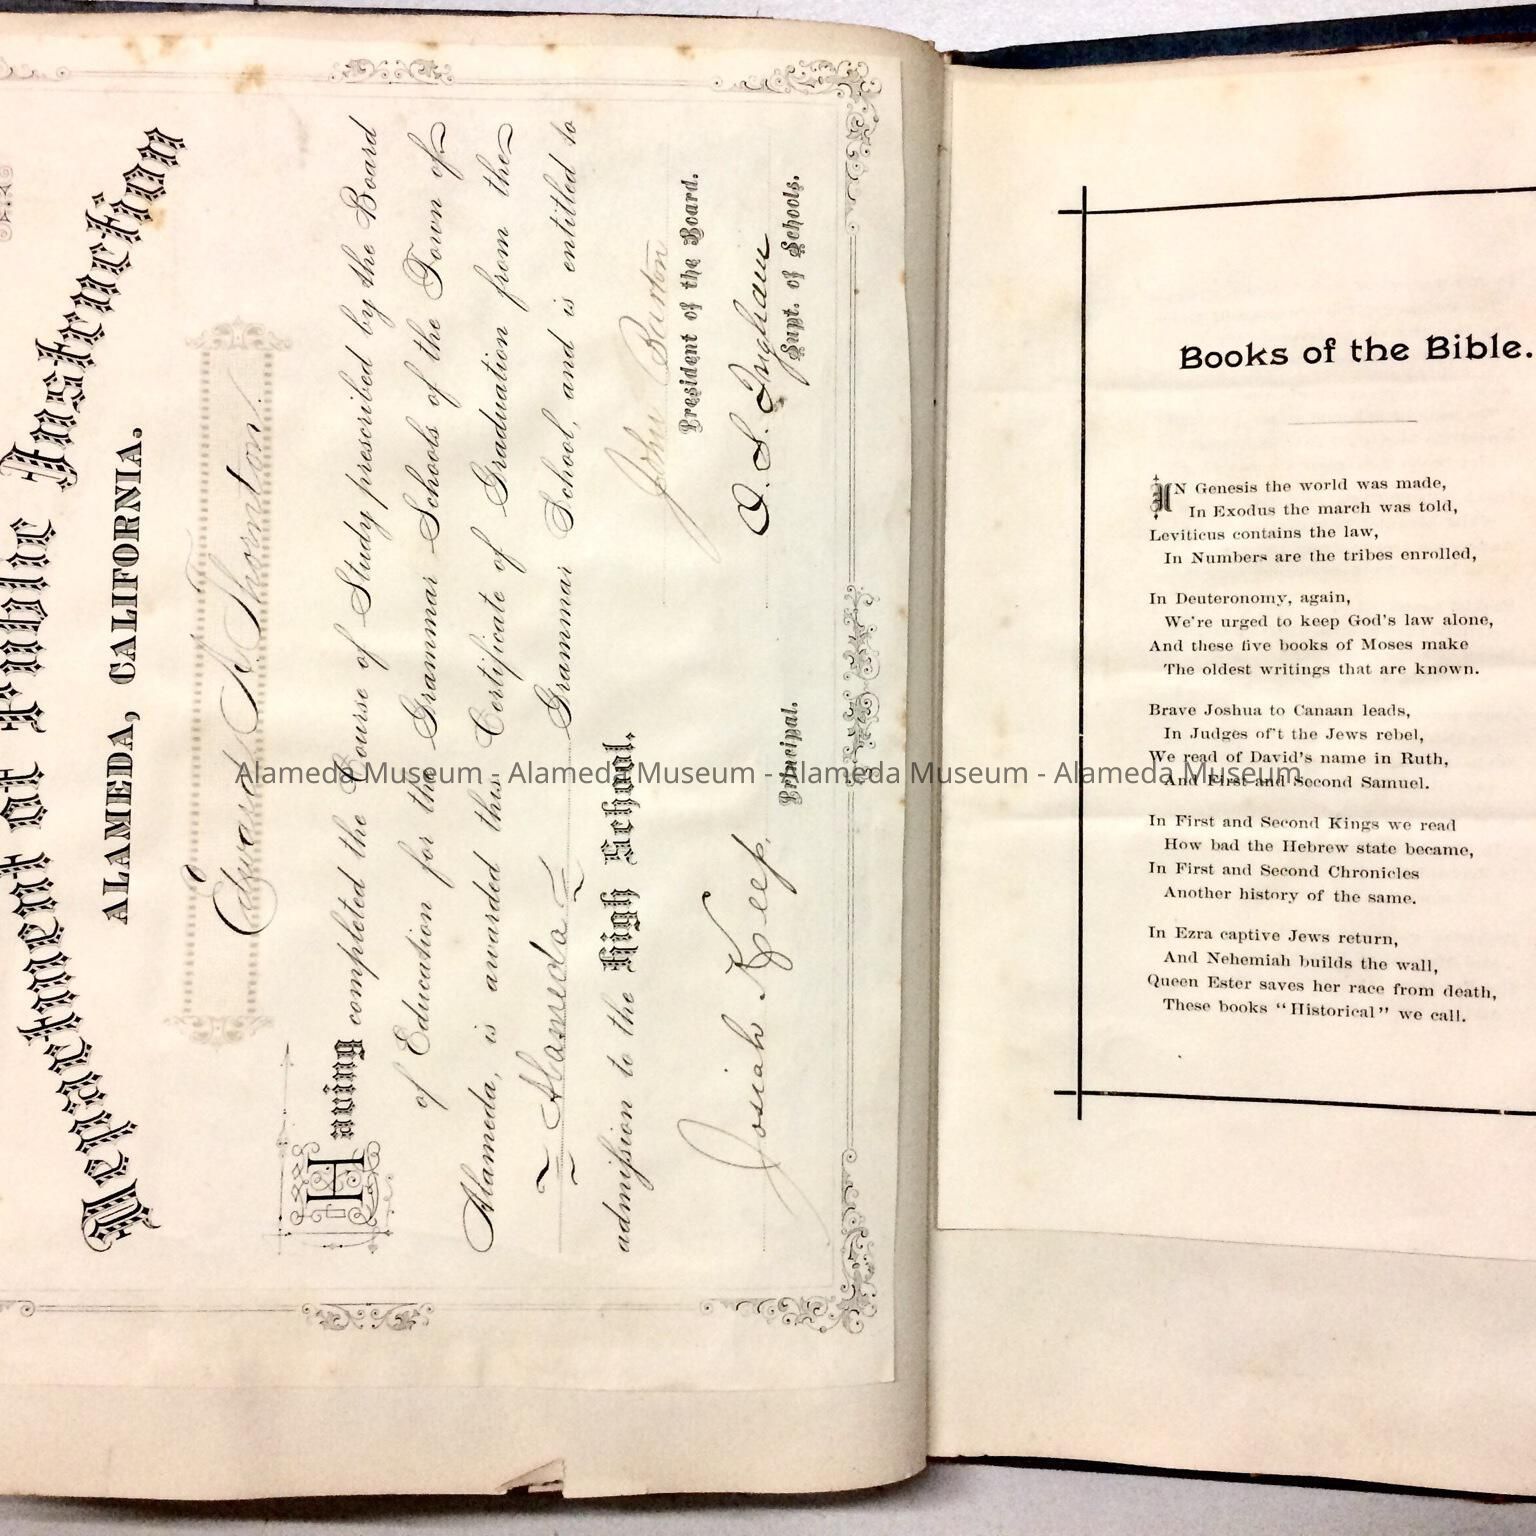 Department of Public Instruction
ALAMEDA, CALIFORNIA.
Edward A Thornton.
Having completed the Course of Study prescribed by the Board
of Education for the Grammar Schools of the Town of
Alameda, is awarded this Certificate of Graduation from the
Alameda Grammar School, and is entitled to
admission to the High School.
John Barton
President of the Board.
Josiah Keep, Principal.
D. S. Ingham
Supt. of Schools.
Books of the Bible.
IN Genesis the world was made,
In Exodus the march was told,
Leviticus contains the law,
In Numbers are the tribes enrolled,
In Deuteronomy, again,
We're urged to keep God's law alone,
And these five books of Moses make
The oldest writings that are known.
Brave Joshua to Canaan leads,
In Judges of't the Jews rebel,
We read of David's name in Ruth,
And First and Second Samuel.
In First and Second Kings we read
How bad the Hebrew state became,
In First and Second Chronicles
Another history of the same.
In Ezra captive Jews return,
And Nehemiah builds the wall,
Queen Ester saves her race from death,
These books "Historical" we call.
Alameda Museum - Alameda Museum - Alameda Museum - Alameda Museum